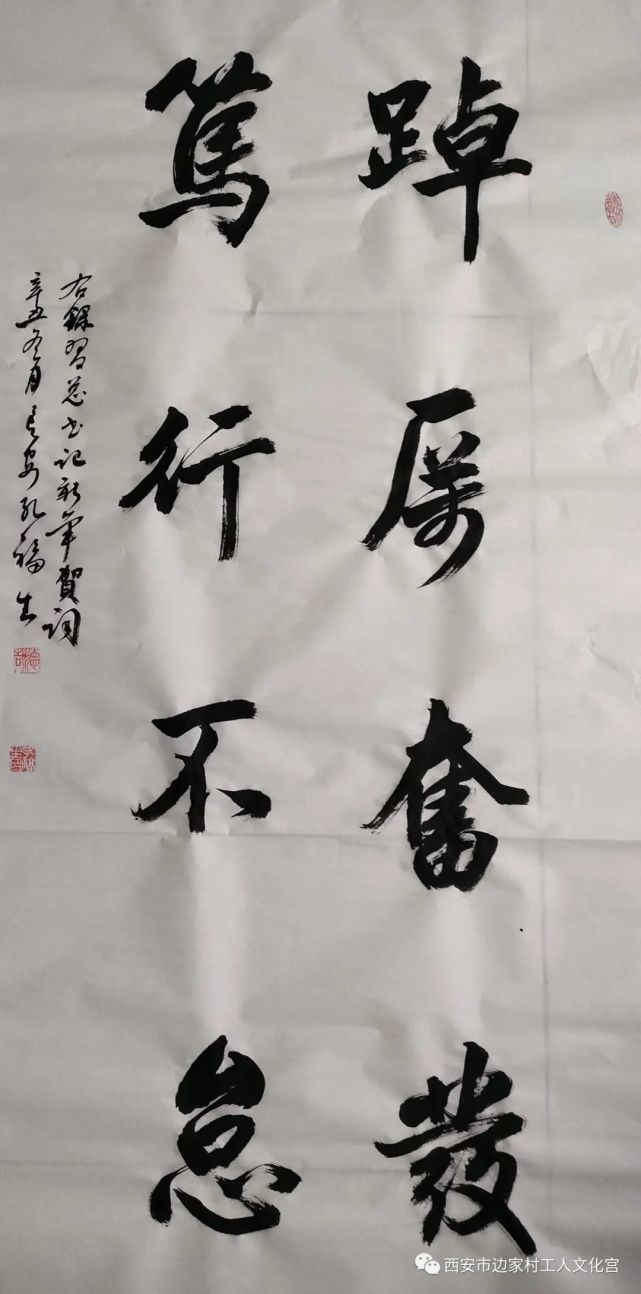 踔厲奮發
篤行不怠
右録習總书记新年賀词
辛丑冬月長安孔福生
西安市边家村工人文化宫